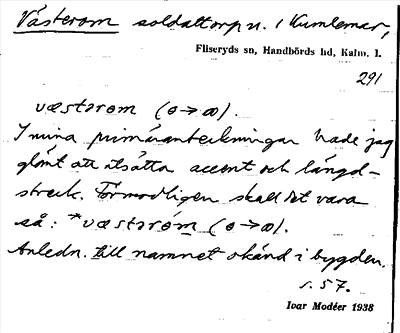 Västerom soldattorp n. i Kumlemar,
Fliseryds sn, Handbörds hd, Kalm. l.
291
væstərøm (ø→ꝏ).
I mina primäranteckningar hade jag
glömt att utsätta accent och längd-
streck. Förmodligen skall det vara
så: *væstərøm (ø→ꝏ).
Anledn. till namnet okänd i bygden.
s. 57.
Ivar Modéer 1938